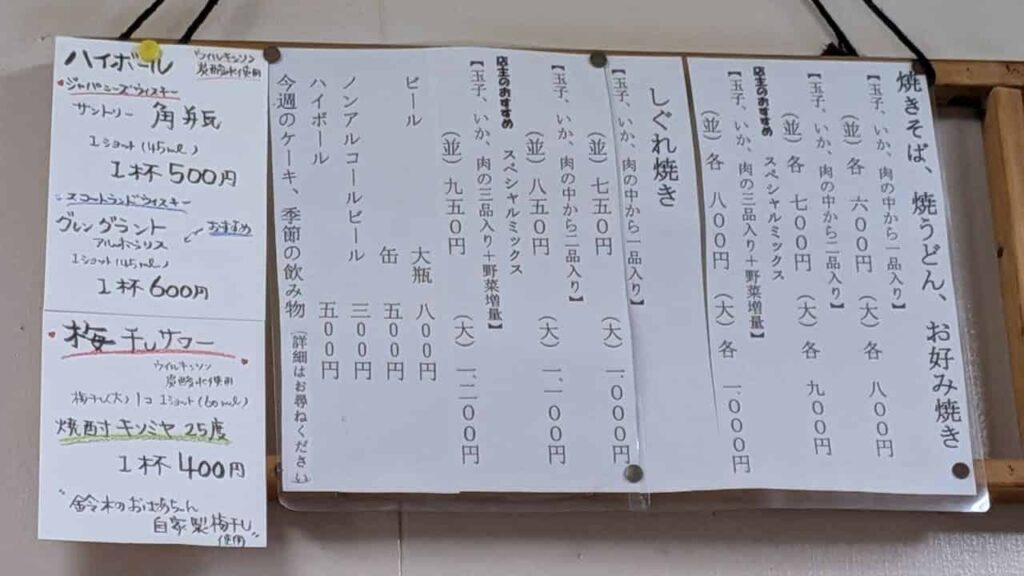 焼きそば、焼うどん、お好み焼き
【玉子、いか、肉の中から一品入り】
（並）各 六〇〇円 （大）各 八〇〇円
【玉子、いか、肉の中から二品入り】
（並）各 七〇〇円 （大）各 九〇〇円
店主のおすすめ スペシャルミックス
【玉子、いか、肉の三品入り＋野菜増量】
（並）各 八〇〇円 （大）各 一、〇〇〇円
しぐれ焼き
【玉子、いか、肉の中から一品入り】
（並）七五〇円 （大）一、〇〇〇円
【玉子、いか、肉の中から二品入り】
（並）八五〇円 （大）一、一〇〇円
店主のおすすめ スペシャルミックス
【玉子、いか、肉の三品入り＋野菜増量】
（並）九五〇円 （大）一、二〇〇円
ビール 大瓶 八〇〇円
缶 五〇〇円
ノンアルコールビール 三〇〇円
ハイボール 五〇〇円
今週のケーキ、季節の飲み物（詳細はお尋ねください）
ハイボール
ウィルキンソン
炭酸水使用
ジャパニーズウィスキー
サントリー 角瓶
1ショット(45ml)
1杯500円
スコートランドウィスキー
グレングラント おすすめ
アルボラリス
1ショット(45ml)
1杯600円
梅干しサワー
ウィルキンソン
炭酸水使用
梅干し(大)1コ 1ショット(60ml)
焼酎キンミヤ25度
1杯400円
"鈴木のおばあちゃん
自家製梅干し"
使用